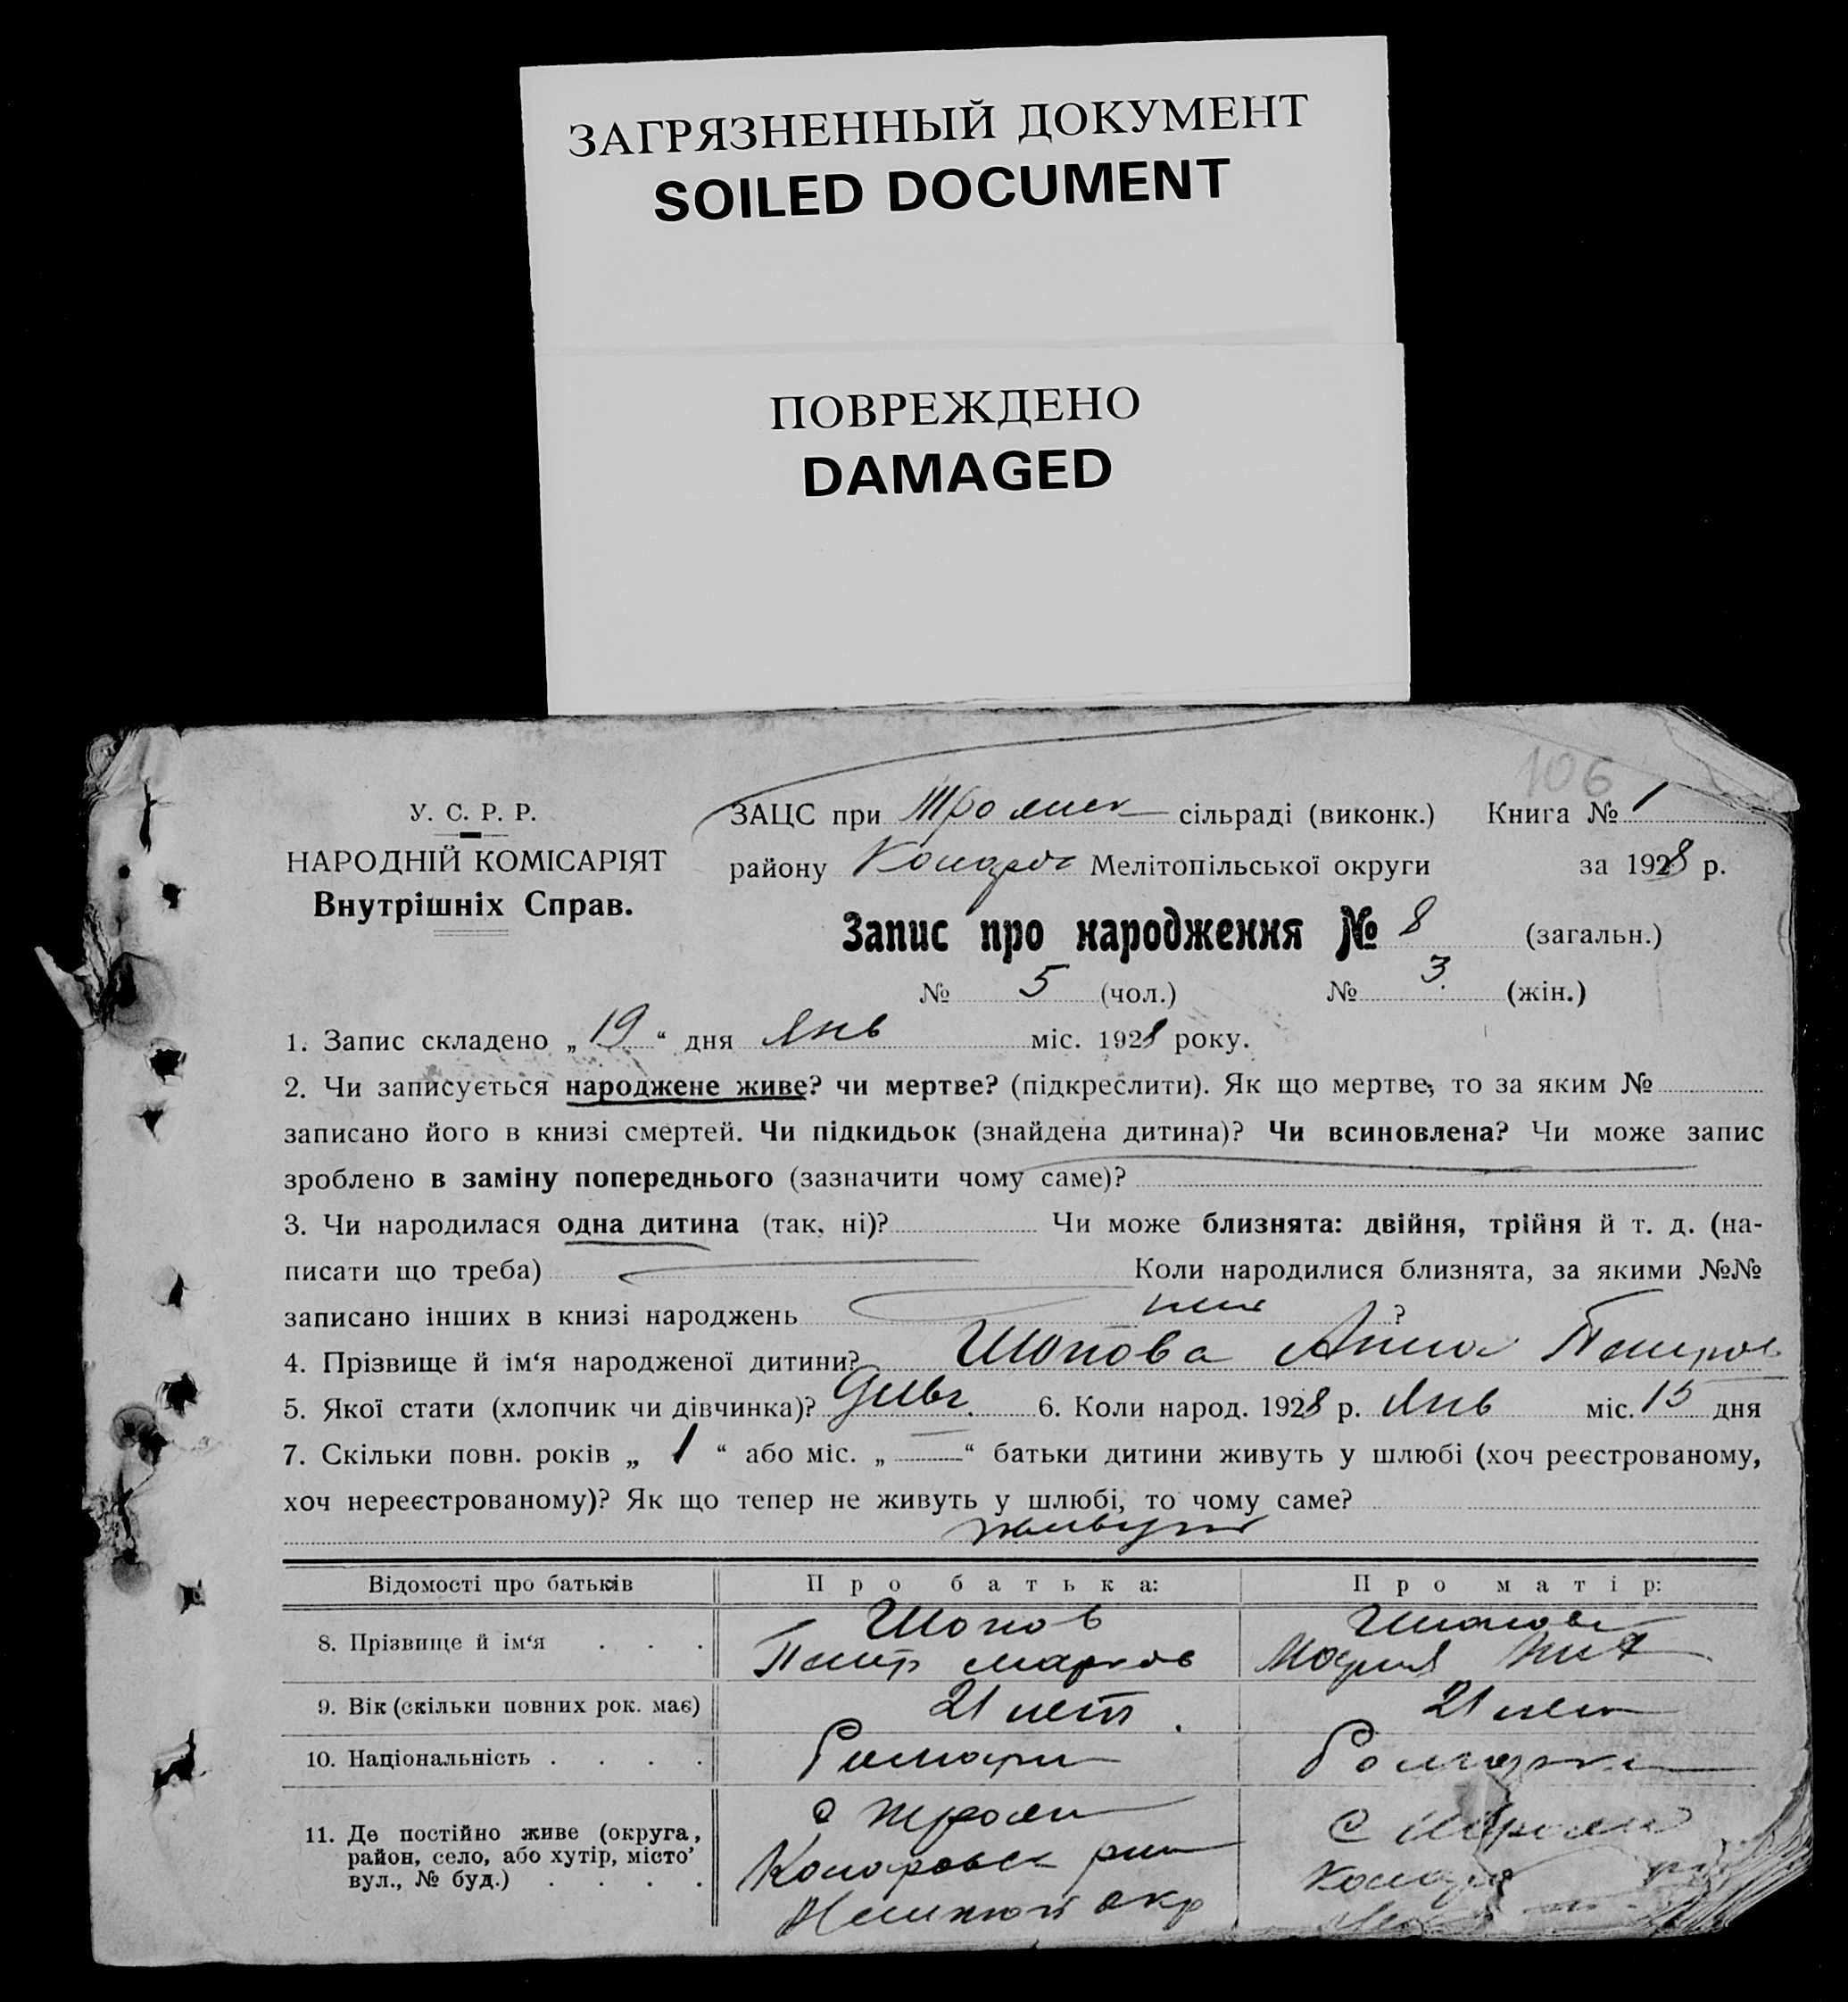 ЗАГРЯЗНЕННЫЙ ДОКУМЕНТ
SOILED DOCUMENT
ПОВРЕЖДЕНО
DAMAGED
106
У. С. Р. Р.
НАРОДНІЙ КОМІСАРІЯТ
Внутрішніх Справ.
ЗАЦС при Троянск сільраді (виконк.) Книга № 1
району Коларов Мелітопільської округи за 1928 р.
Запис про народження № 8 (загальн.)
№ 5 (чол.) № 3 (жін.)
1. Запис складено „ 19 “ дня Янв міс. 1928 року.
2. Чи записується народжене живе? чи мертве? (підкреслити). Як що мертве, то за яким №
записано його в книзі смертей. Чи підкидьок (знайдена дитина)? Чи всиновлена? Чи може запис
зроблено в заміну попереднього (зазначити чому саме)?
3. Чи народилася одна дитина (так, ні)? Чи може близнята: двійня, трійня й т. д. (на-
писати що треба) Коли народилися близнята, за якими №№
записано інших в книзі народжень ?
4. Прізвище й ім‘я народженої дитини? Шопова Анна Петров
5. Якої стати (хлопчик чи дівчинка)? 6. Коли народ. 1928 р. Янв міс. 15 дня
7. Скільки повн. років „ 1 “ або міс. „ — “ батьки дитини живуть у шлюбі (хоч реєстрованому,
хоч нереєстрованому)? Як що тепер не живуть у шлюбі, то чому саме?
живут
Відомості про батьків Про батька: Про матір:
8. Прізвище й ім‘я . . . Шопов Петр Марков Шопова Мария
9. Вік (скільки повних рок. має) 21 лет 21 лет
10. Національність . . . .
11. Де постійно живе (округа, район, село, або хутір, місто, вул., № буд.) . . . .
с Троян
Коларовск рн
окр
с Троян
Колар